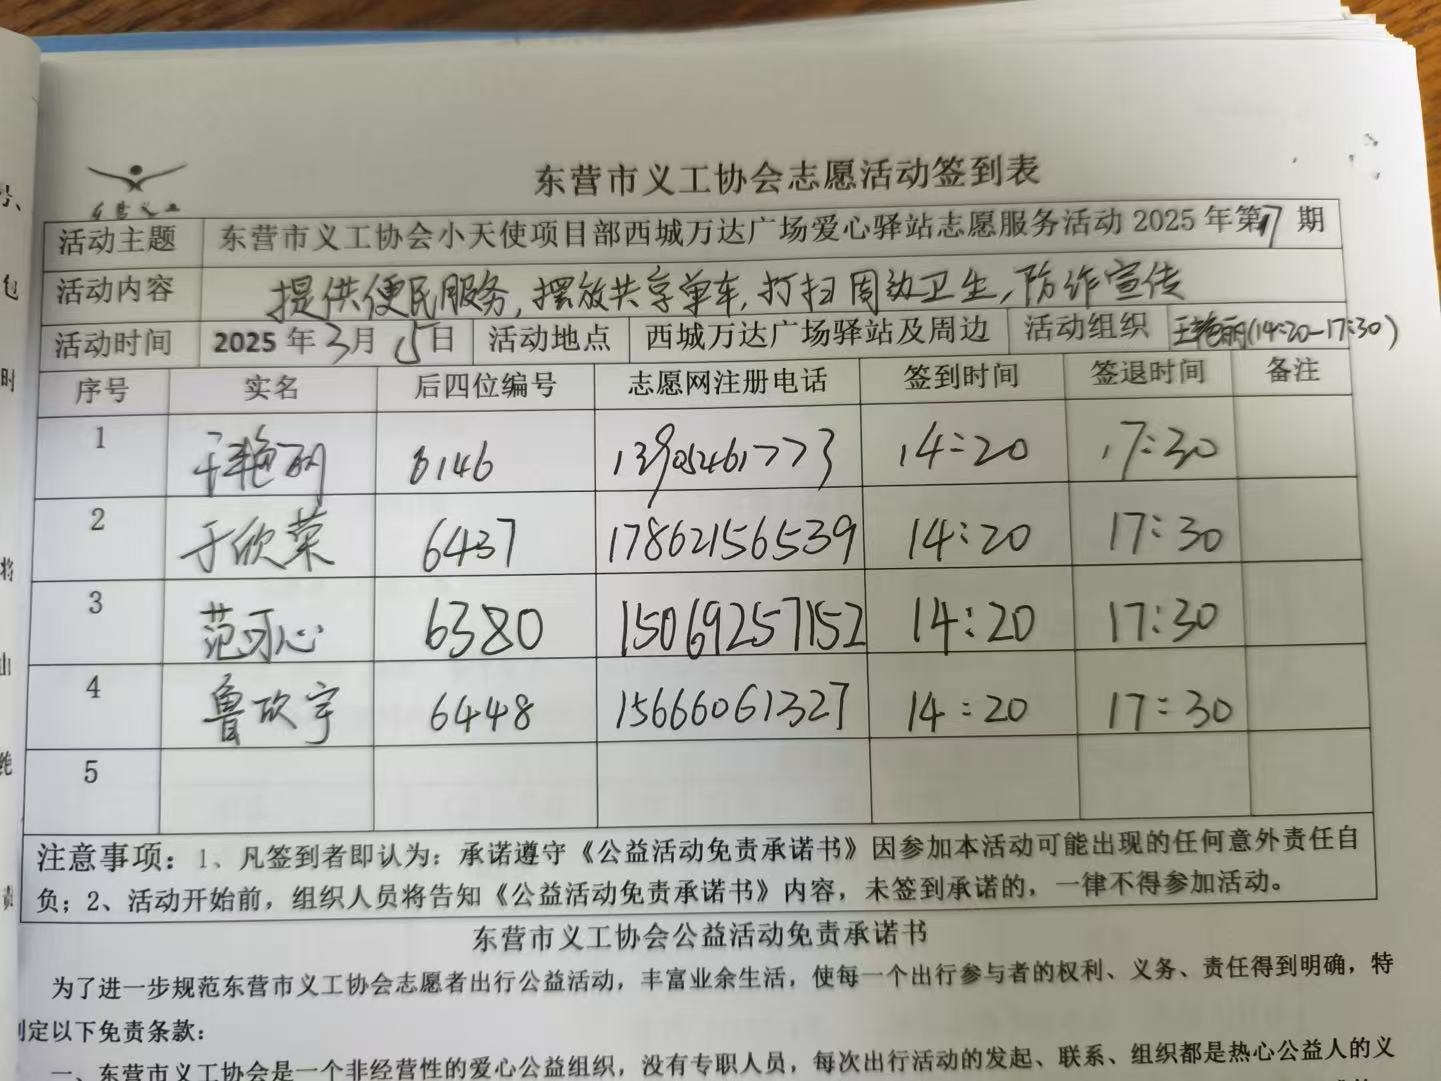 东营市义工协会志愿活动签到表
东营义工
活动主题 东营市义工协会小天使项目部西城万达广场爱心驿站志愿服务活动 2025 年第17期
活动内容 提供便民服务,摆放共享单车,打扫周边卫生,防诈宣传
活动时间 2025 年3月15日 活动地点 西城万达广场驿站及周边 活动组织 王艳丽(14:20-17:30)
序号 实名 后四位编号 志愿网注册电话 签到时间 签退时间 备注
1 王艳丽 6146 13905461773 14:20 17:30
2 于欣荣 6437 17862156539 14:20 17:30
3 范可心 6380 15069257152 14:20 17:30
4 鲁欣宇 6448 15666061327 14:20 17:30
5
注意事项:1、凡签到者即认为:承诺遵守《公益活动免责承诺书》因参加本活动可能出现的任何意外责任自
负;2、活动开始前,组织人员将告知《公益活动免责承诺书》内容,未签到承诺的,一律不得参加活动。
东营市义工协会公益活动免责承诺书
为了进一步规范东营市义工协会志愿者出行公益活动,丰富业余生活,使每一个出行参与者的权利、义务、责任得到明确,特
制定以下免责条款:
一、东营市义工协会是一个非经营性的爱心公益组织,没有专职人员,每次出行活动的发起、联系、组织都是热心公益人的义